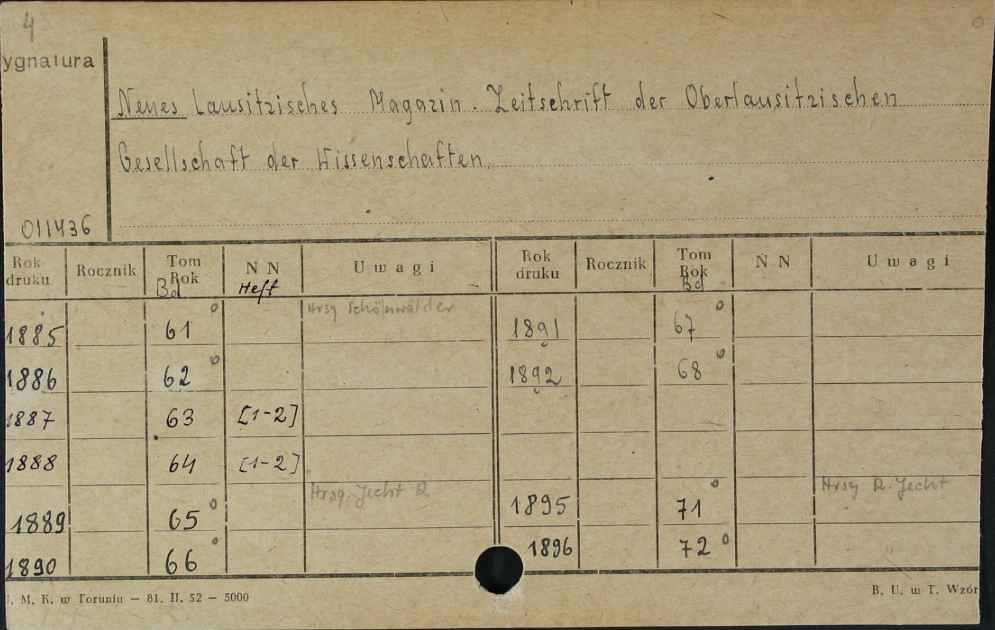 4
ygnatura
Neues Lausitzisches Magazin. Zeitschrift der Oberlausitzischen
Gesellschaft der Wissenschaften.
011436
Rok druku Rocznik Tom Rok Bd N N Heft Uwagi Rok druku Rocznik Tom Rok Bd N N Uwagi
Hrsg Schönwälder
1885 61 o 1891 67 o
1886 62 o 1892 68 o
1887 63 [1-2]
1888 64 [1-2]
Hrsg. Jecht R Hrsg R. Jecht
1889 65 o 1895 71 o
1890 66 o 1896 72 o
U. M. K. w Toruniu — 81. II. 52 — 5000 B. U. w T. Wzór